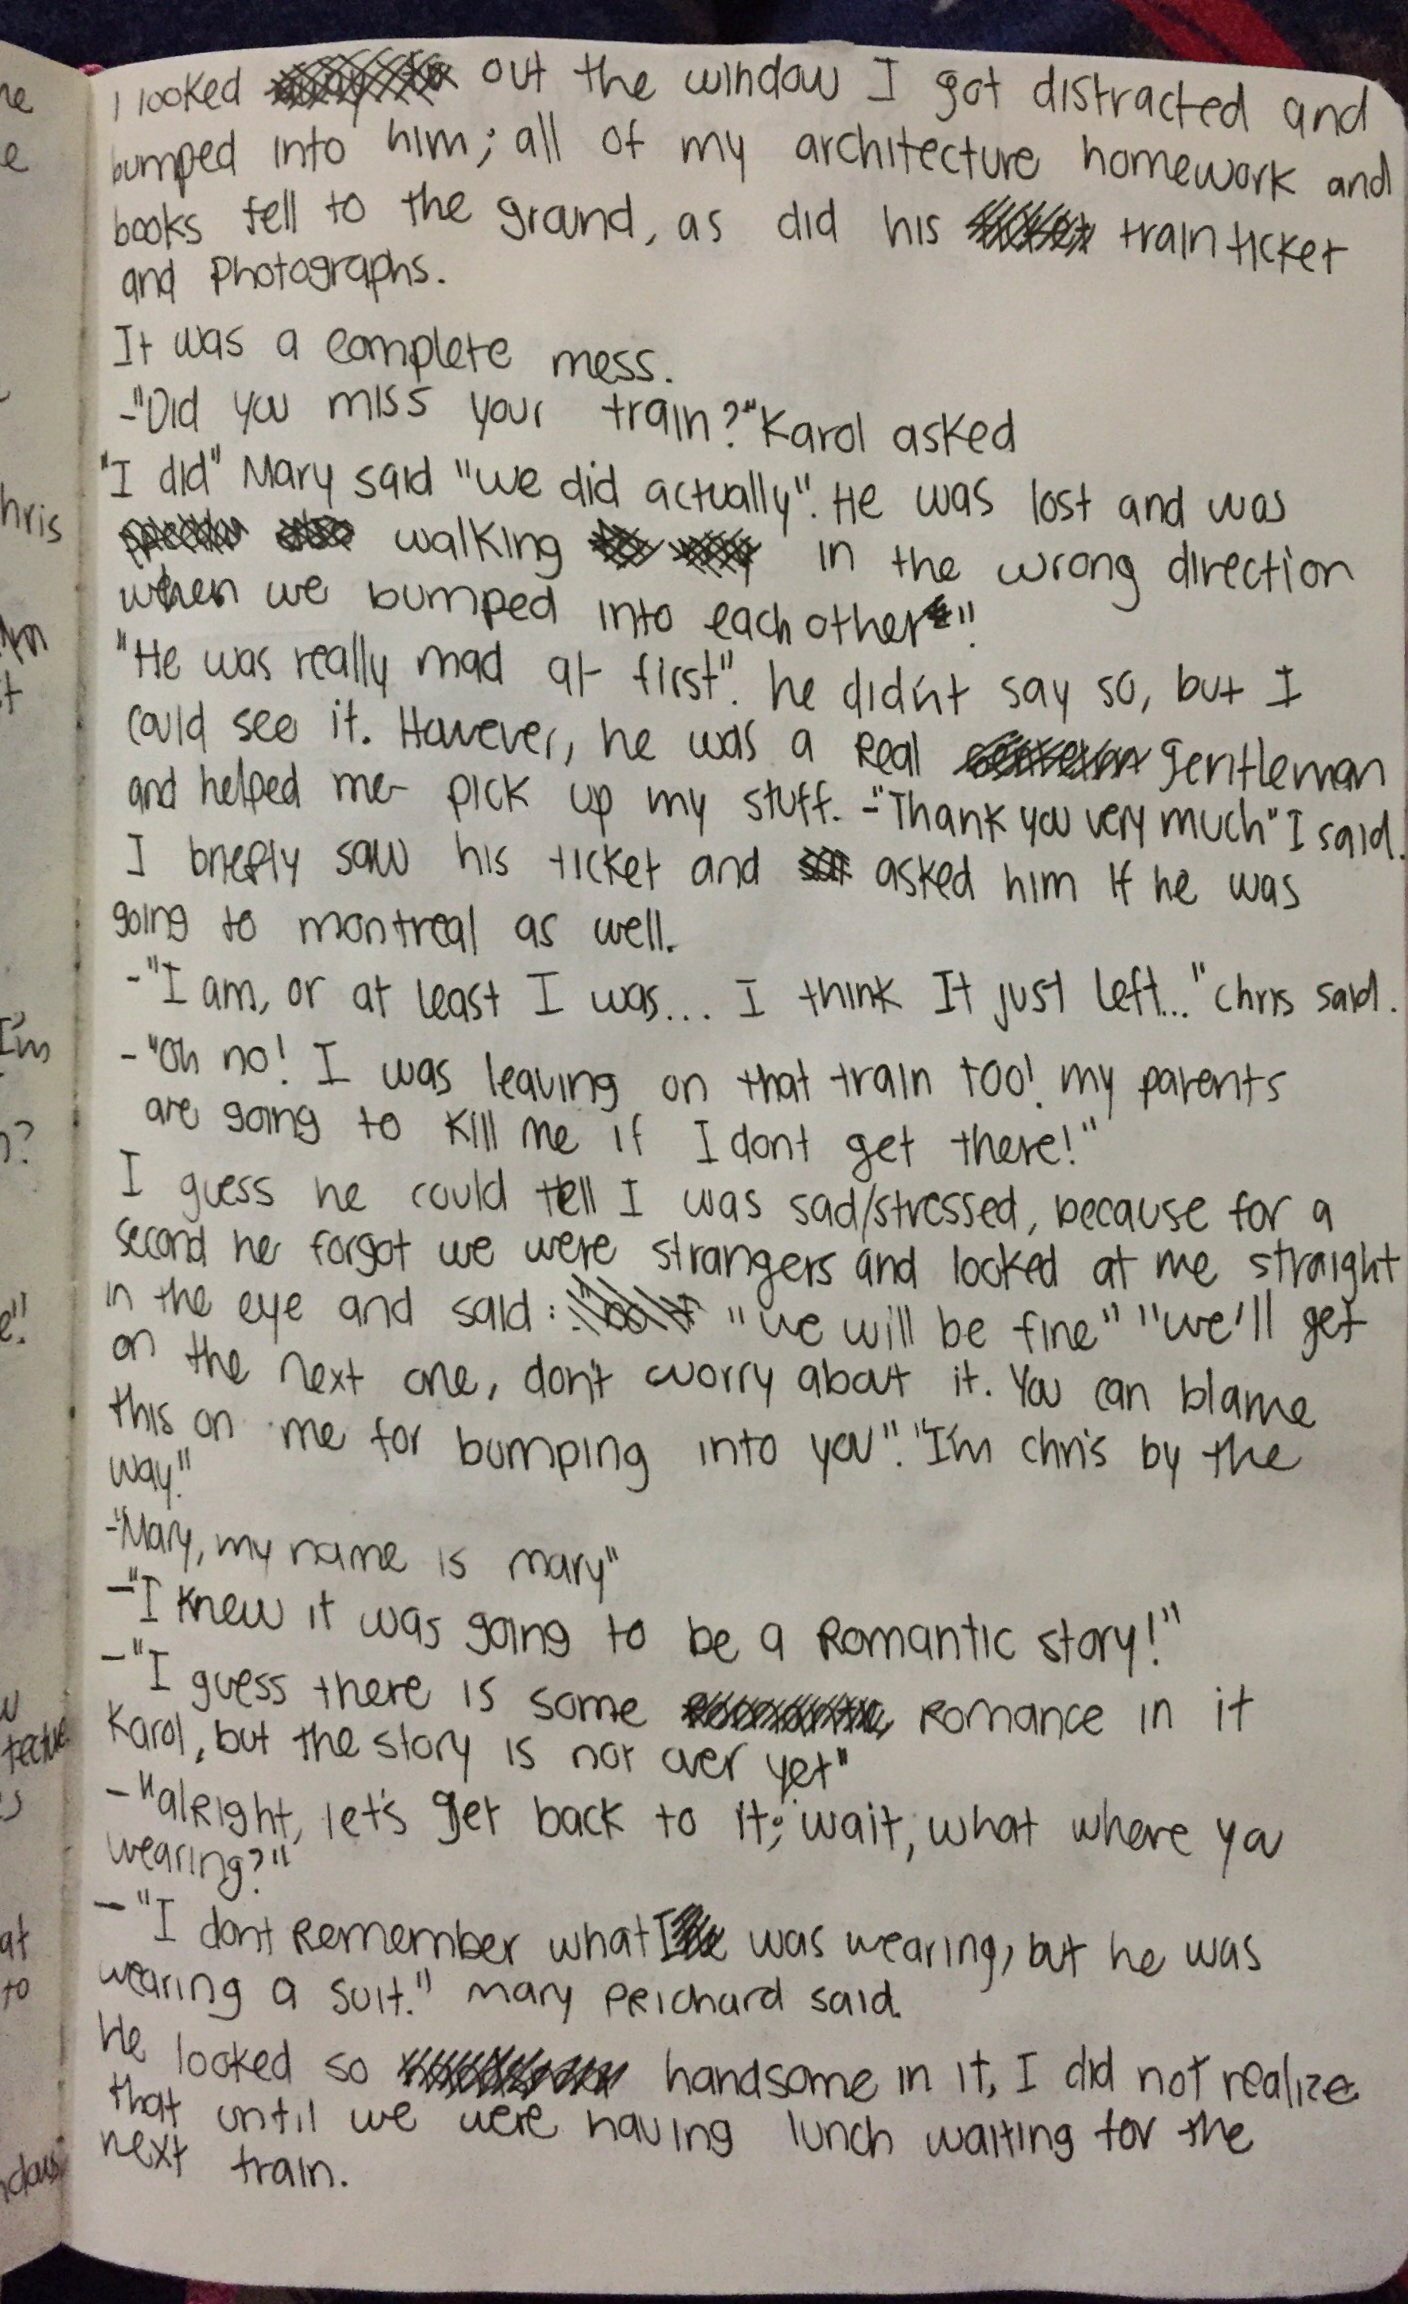 I looked out the window I got distracted and
bumped into him; all of my architecture homework and
books fell to the ground, as did his train ticket
and photographs.
It was a complete mess.
-"Did you miss your train?" Karol asked
"I did" Mary said "we did actually". He was lost and was
walking in the wrong direction
when we bumped into each other".
"He was really mad at first". he didn't say so, but I
could see it. However, he was a real gentleman
and helped me pick up my stuff. -"Thank you very much" I said.
I briefly saw his ticket and asked him if he was
going to montreal as well.
-"I am, or at least I was... I think It just left..." Chris said.
-"Oh no! I was leaving on that train too! my parents
are going to kill me if I dont get there!"
I guess he could tell I was sad/stressed, because for a
second he forgot we were strangers and looked at me straight
in the eye and said: "we will be fine" "we'll get
on the next one, don't worry about it. You can blame
this on me for bumping into you". "I'm chris by the
way."
-"Mary, my name is mary"
-"I knew it was going to be a Romantic story!"
-"I guess there is some Romance in it
Karol, but the story is not over yet"
-"alright, let's get back to it; wait, what where you
wearing?"
-"I dont Remember what I was wearing, but he was
wearing a suit." mary Prichard said.
He looked so handsome in it, I did not realize
that until we were having lunch waiting for the
next train.
he
e
hris
I'm
?
e"
at
to